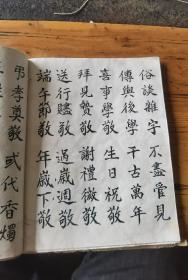 俗談雜字 不盡管見
傳與後學 千古萬年
喜事學敬 生日祝敬
拜見贄敬 謝禮微敬
送行贐敬 過歲週敬
端午節敬 年歲下敬
弔孝奠敬 或代香燭